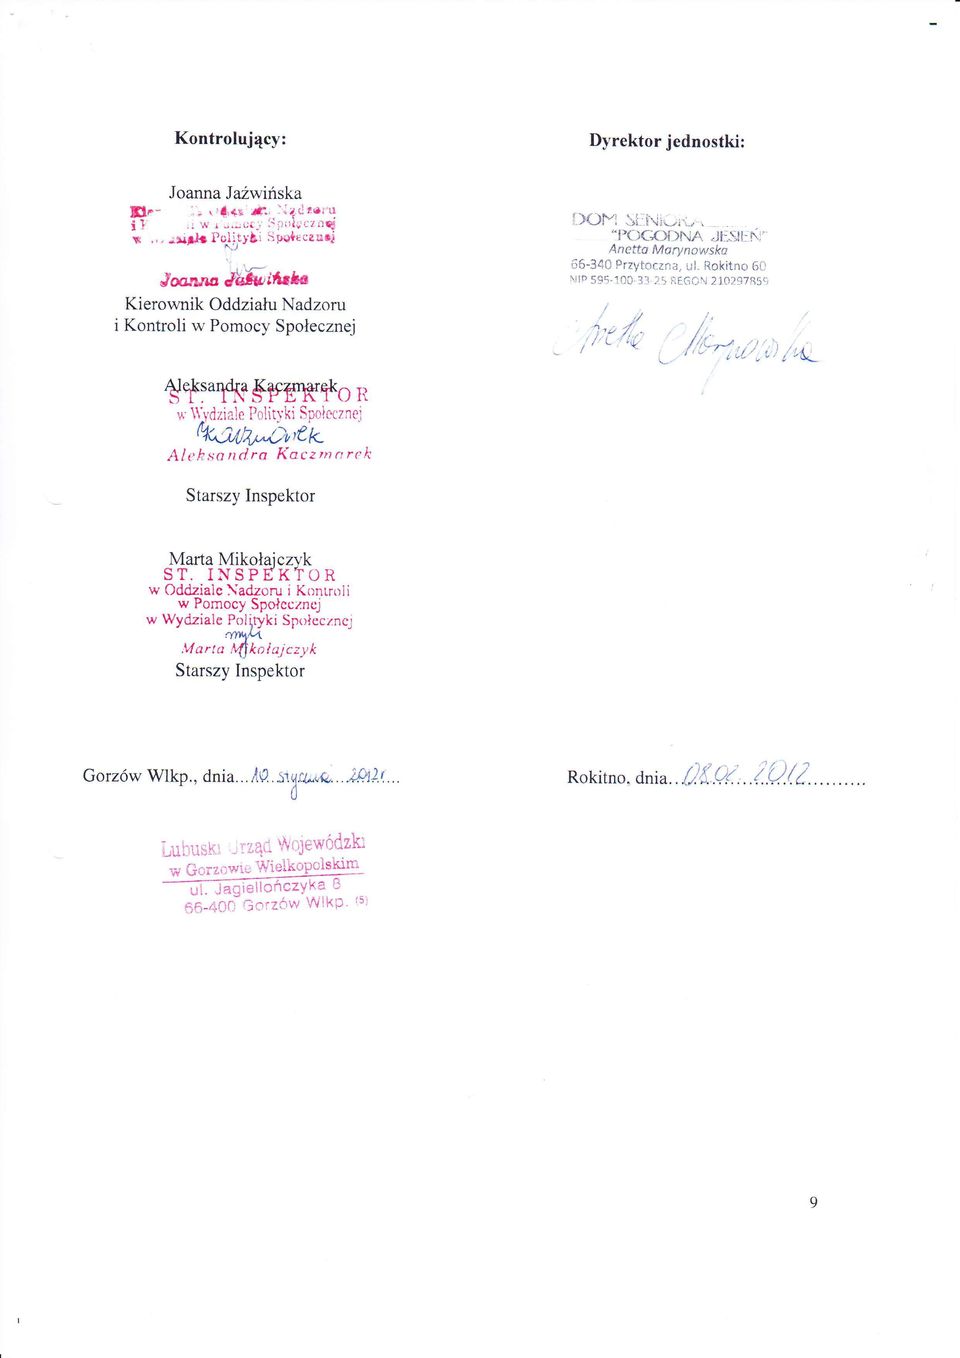 Kontrolujący:
Dyrektor jednostki:
Joanna Jaźwińska
Nadzoru
i w Społecznej
w Polityki Społecznej
Joanna Jaźwińska
Kierownik Oddziału Nadzoru
i Kontroli w Pomocy Społecznej
DOM SENIORA
"POGODNA JESIEŃ"
Anetta Marynowska
66-340 Przytoczna, ul. Rokitno 60
NIP 595-100-33-25 REGON 210297859
Anetta Marynowska
Aleksandra Kaczmarek
ST. INSPEKTOR
w Wydziale Polityki Społecznej
Kaczmarek
Aleksandra Kaczmarek
Starszy Inspektor
Marta Mikołajczyk
ST. INSPEKTOR
w Oddziale Nadzoru i Kontroli
w Pomocy Społecznej
w Wydziale Polityki Społecznej
Marta Mikołajczyk
Starszy Inspektor
Gorzów Wlkp., dnia...10..stycznia...2012r...
Rokitno, dnia...08.02..2012...........
Lubuski Urząd Wojewódzki
w Gorzowie Wielkopolskim
ul. Jagiellończyka 8
66-400 Gorzów Wlkp. (5)
9